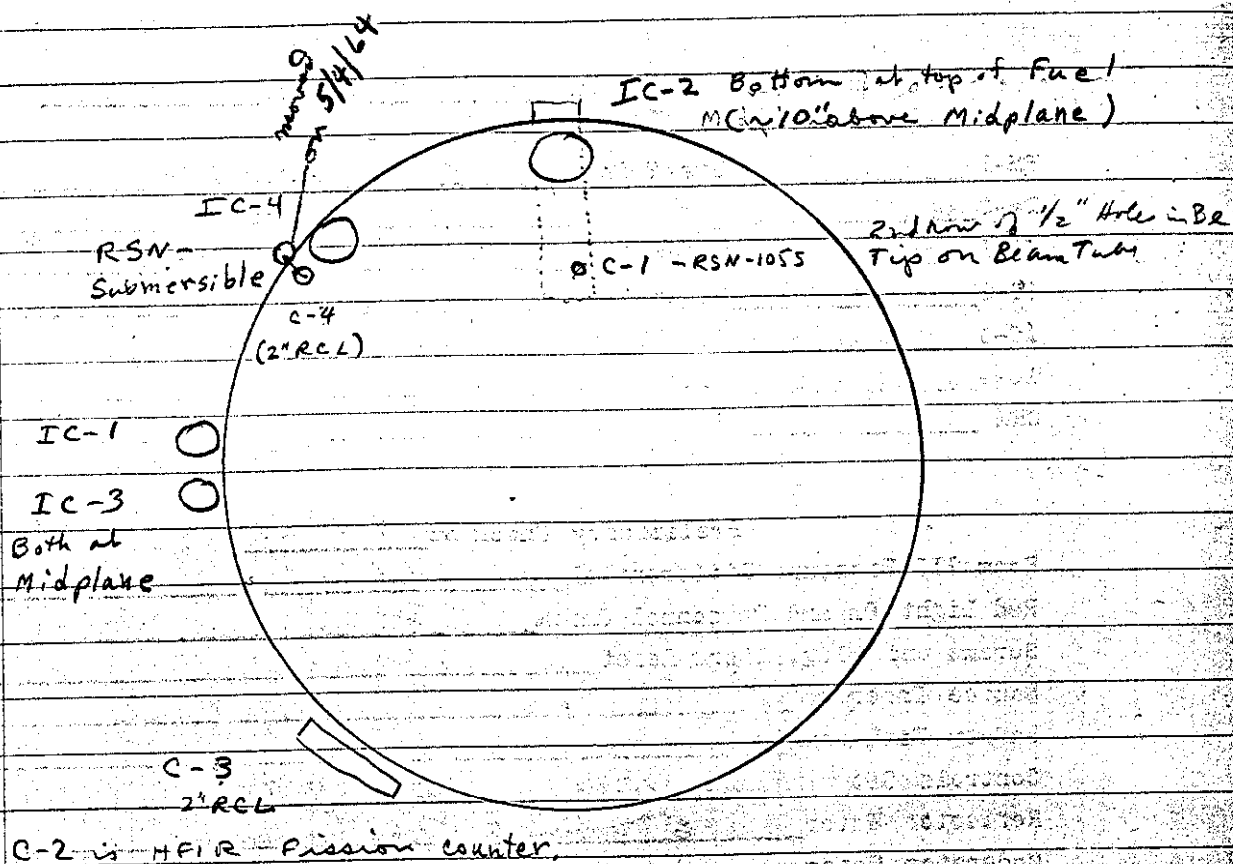 moved
on 5/4/64
IC-2 Bottom at top of Fuel
(~10" above Midplane)
IC-4
RSN-
Submersible
C-4
(2" RCL)
C-1 - RSN-1055
2nd row of 1/2" Holes in Be
Tip on Beam Tube
IC-1
IC-3
Both at
Midplane
C-3
2" RCL
C-2 is HFIR Fission counter.